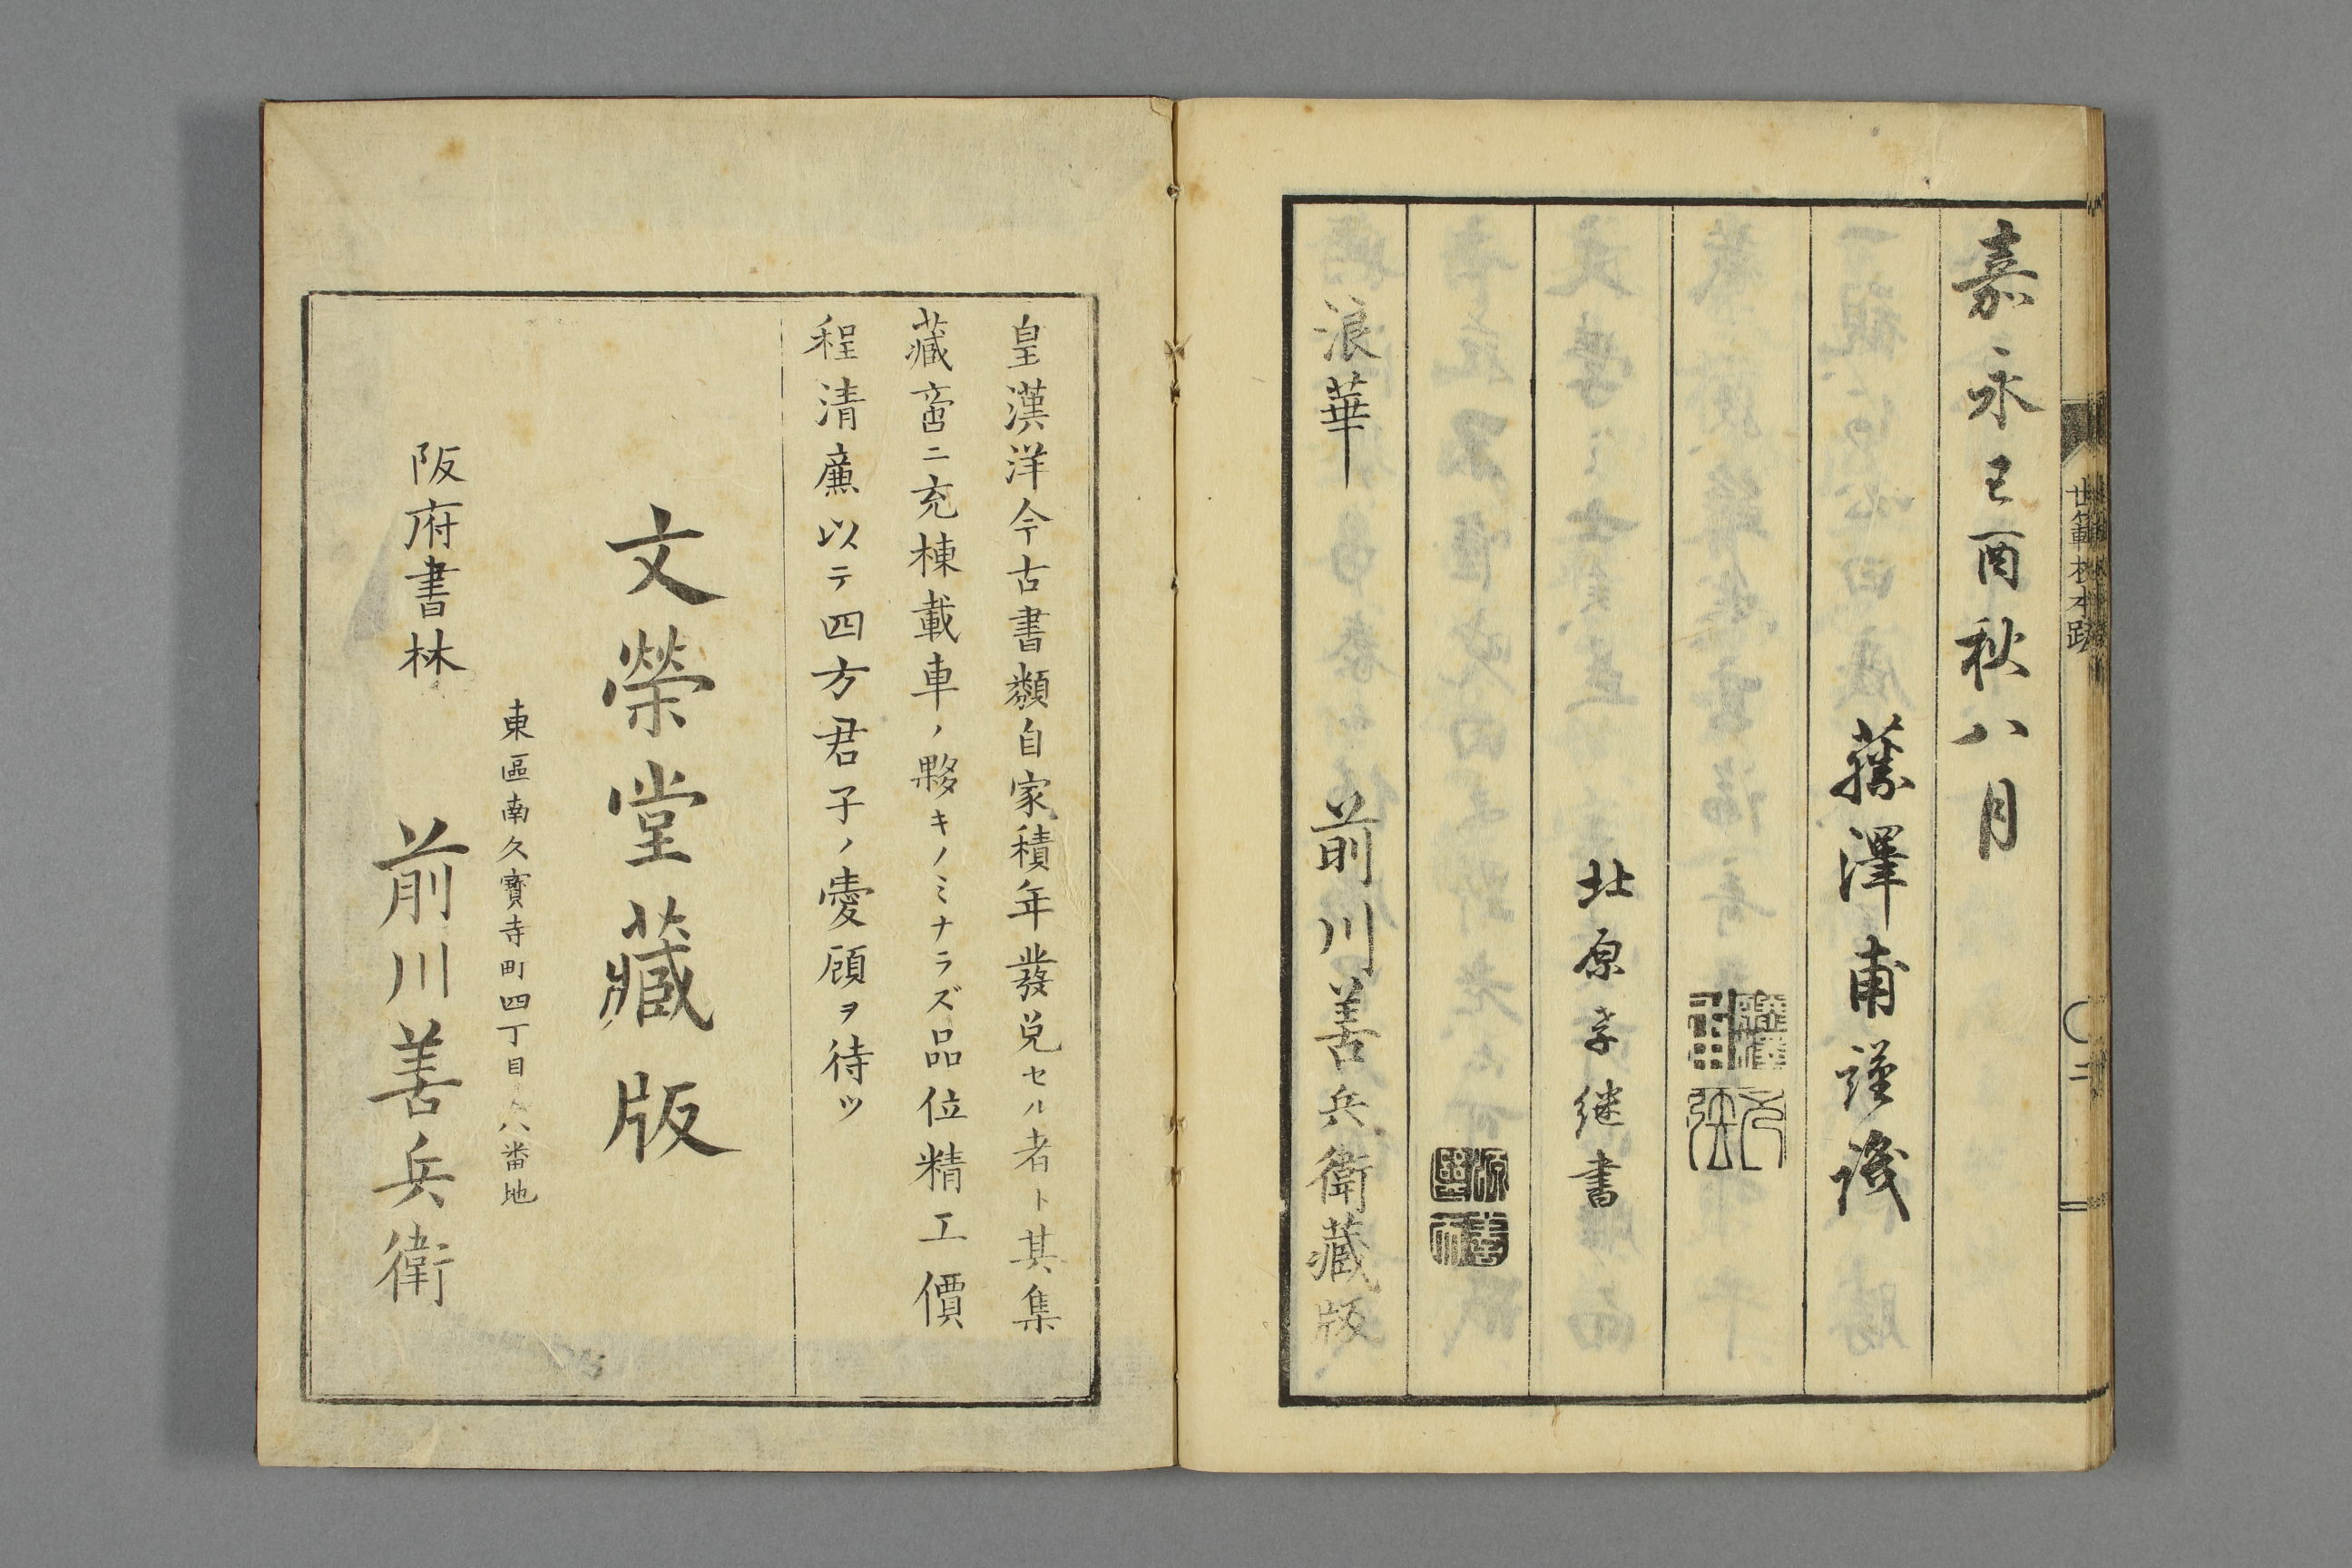 世範校本跋
二
嘉永己酉秋八月
藤澤甫謹識
北原孝継書
浪華 前川善兵衛藏版
皇漢洋今古書類自家積年發兌セル者ト其集
藏啻ニ充棟載車ノ夥キノミナラズ品位精工價
程清廉以テ四方君子ノ愛顧ヲ待ツ
文榮堂藏版
東區南久寶寺町四丁目八番地
阪府書林 前川善兵衛